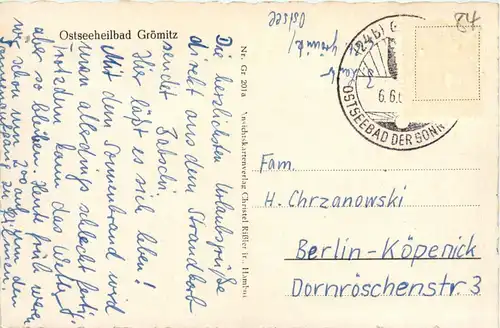 Ostseeheilbad Grömitz
Die herzlichsten Urlaubsgrüße
direkt aus dem Strandkorb
sendet
Hier läßt es sich leben!
Mit dem Sonnenbrand wird
man allerdings schlecht fertig
trotzdem kann das Wetter
aber so bleiben. Heute früh waren
wir schon um 7.00 auf, um den
Nr. Gr 201a Ansichtskartenverlag Christel Rißler
Ostsee
(24b) G
6.6.6
OSTSEEBAD DER SONN
84
Fam.
H. Chrzanowski
Berlin-Köpenick
Dornröschenstr. 3